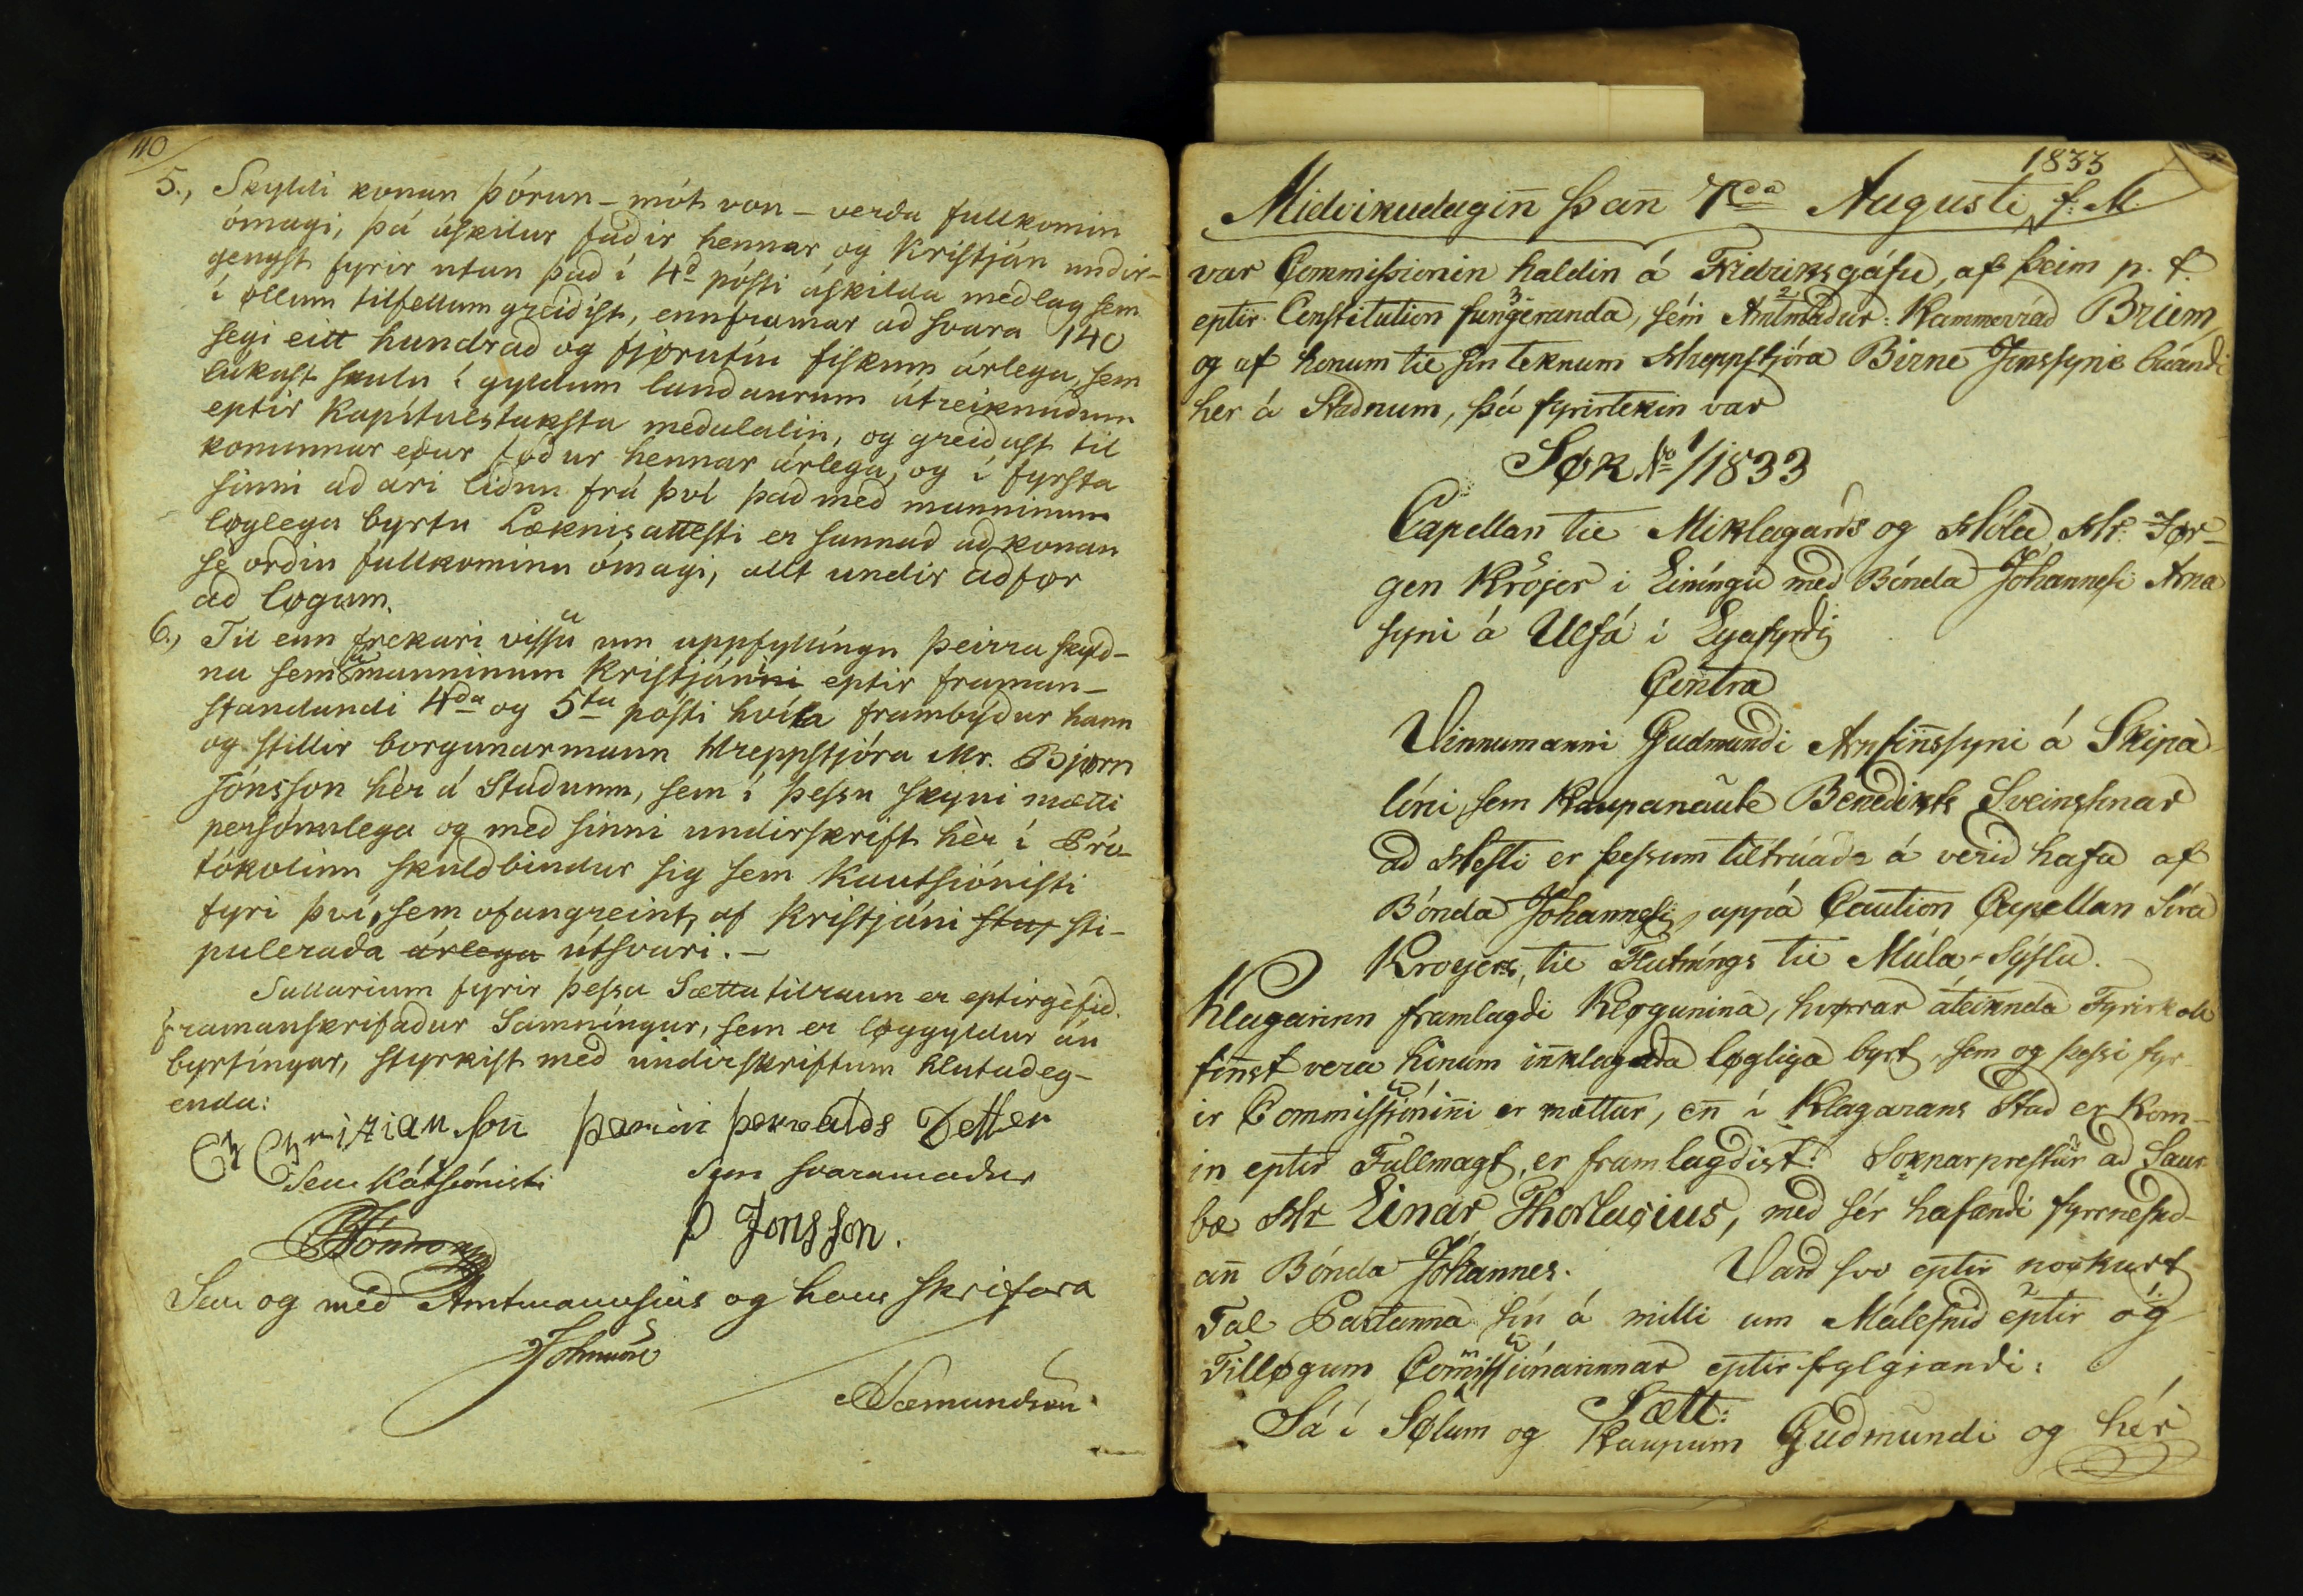 110
5., Skyldi konan Þórun - mót von - verða fullkomin
ómagi, þá áskilur faðir hennar og Kristján undir-
gengst fyrir utan það í 4ð pósti áskilda meðlag sem
í øllum tilfellum greiðist, ennframar að svara 140
segi eitt hundrað og fjørutíu fiskum árlega, sem
lúkast skulu í gyldum landaurum útreiknuðum
eptir Kapítulstaksta meðalalin, og greiðast til
konunnar eður føður hennar árlega, og í fyrsta
sinni að ári liðnu frá því það með manninum
løglega byrtu Læknisattesti er sannað að konan
sé orðin fullkominn ómagi, allt undir aðfør
að løgum.
6., Til enn frekari vissu um uppfyllíngu þeirra skyld-
na sem á manninum Kristjáni eptir framan-
standandi 4da og 5ta pósti hvíla frambýður hann
og stillir borgunarmann Hreppstjóra Mr. Bjørn
Jónsson hèr á Staðnum, sem í þessu skyni mætti
persónulega og með sinni undirskrift hèr í Pró-
tókolinn skuldbindur sig sem Kautsiónisti
fyri því, sem ofangreint, af Kristjáni stip sti-
puleraða árlega útsvari. -
Sallarium fyrir þessa Sættatilraun er eptirgéfið.
Framanskrifaður Samníngur, sem er løggyldur án
byrtíngar, styrkist með undirskriftum hlutaðeg-
enda:
Christian son Þorvalds Dotter
Sem Kátsiónisti sem svaramaður
Þ Jonsson.
Sem og með Amtmannsins og hans skrifara
Johnson
Sæmundsen
1833
Miðvikudagin̅ þan̅ 7da Augusti f: M.
var Commissionin haldin á Friðriksgáfu, af þeim p. t.
eptir Constitution fungeranda, sem Amtmaður: Kammerráð Briem,
og af honum til sín teknum Hreppstjóra Birne Jónssyni búandi
her á Staðnum, þá fyrirtekin var
Søk No 1/1833
Capellan til Miklagarðs og Hóla, Hr. Jør-
gen Kröjer i Einíngu með Bónda Jóhannesi Árna
syni á Ulfá í Eyafyrði
Contra
Vinnumanni Guðmundi Arnfin̅ssyni á Skipa-
lóni, sem Kaupanaute Benedikts Sveinssonar
að Hesti er þessum tiltrúað á verið hafa af
Bónda Jóhannesi, uppá Caution Capellan Síra
Kroyers, til Flutníngs til Múla-Sýslu.
Klagarinn framlagði Kløgunina, hvørrar áteiknada Fyrirkall
fin̅st vera hinum in̅klagaða løgliga byrt, sem og þessi fyr-
ir Commissiónin̅i er mættur, en̅ í Klagarans Stað er kom-
in eptir Fullmagt, er framlagðist: Soknarprestur að Saur-
bæ Hr Einar Thorlacius, með sér hafandi fyrrnefnd-
an̅ Bónda Jóhannes. Varð svo eptir nockurt
Tal Partanna sín á milli um Málefnið eptir og
Tilløgum Com̅issiónarinnar eptirfylgjandi:
Sætt:
Sá í Sølum og Kaupum Guðmundi og hér